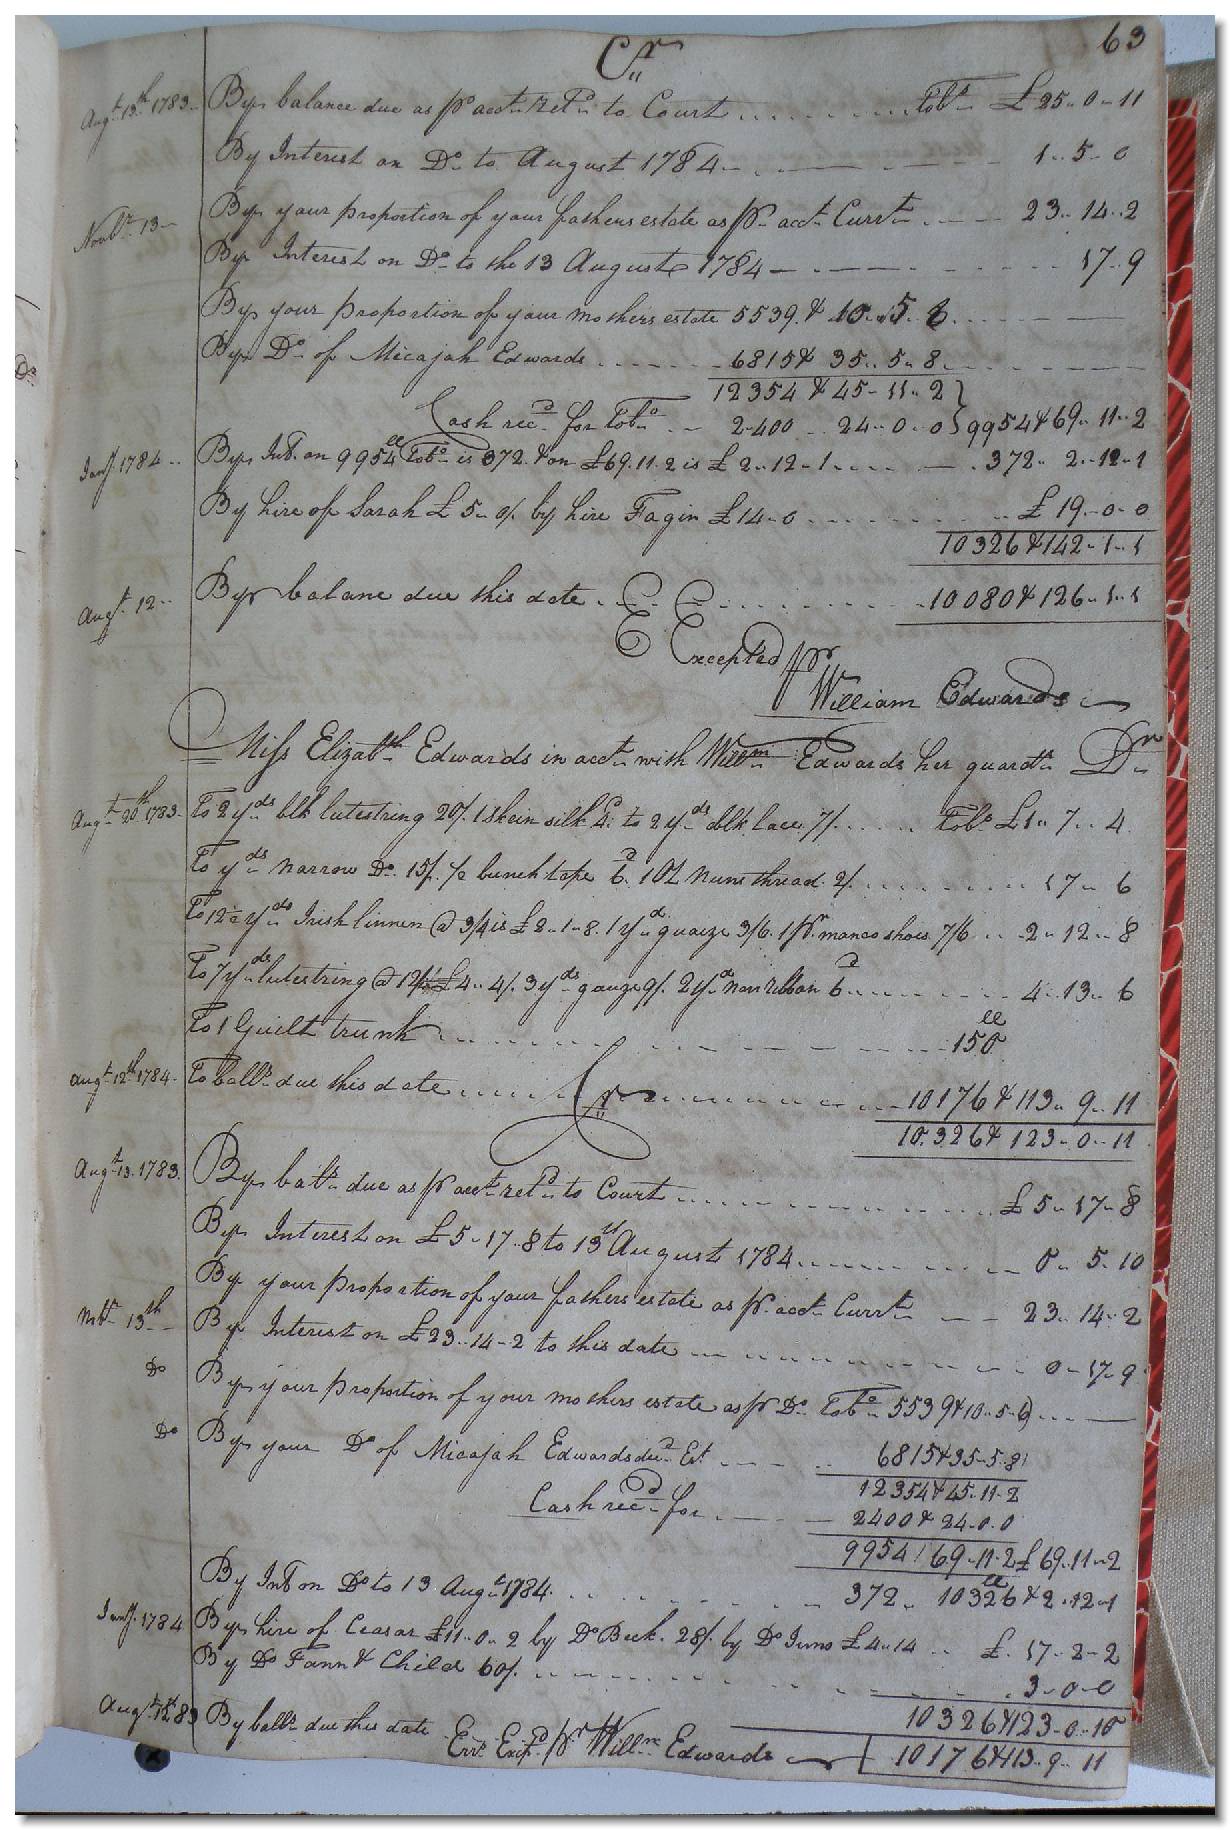 63
Cr
Augt. 13th 1783 By balance due as pr acct. retd. to Court Tobo. £ 25 - 0 - 11
By Interest on Do. to August 1784 1 - 5 - 0
Novbr. 13 By your proportion of your fathers estate as pr acct. Currt. 23 - 14 - 2
By Interest on Do. to the 13 August 1784 17 - 9
By your proportion of your mothers estate 5539 & 10 - 5 - 6
By Do. of Micajah Edwards 6815 & 35 - 5 - 8
12354 & 45 - 11 - 2
Cash recd. for Tobo. 2400 24 - 0 - 0 } 9954 & 69 - 11 - 2
Jany. 1784 By Int. on 9954 ll Tobo. is 372 & on £69.11.2 is £ 2 - 12 - 1 372 - 2 - 12 - 1
By hire of Sarah £ 5 - 0/ by hire Fagin £14 - 0 £ 19 - 0 - 0
10326 & 142 - 1 - 1
Augt. 12 By balane due this date 10080 & 126 - 1 - 1
E Excepted pr
William Edwards
Miss Elizabth. Edwards in acct. with Willm. Edwards her guardn. Dr
Augt. 20th 1783 To 2 yds blk lutestring 20/. 1 skein silk to 2 yds blk lace 7/ Tobo. £1 - 7 - 4
To yds narrow Do. 15/. bunch tape 6d. Nuns thread 2/. 17 - 6
To 12 yds Irish linnen @ 3/4 is £ 2 - 1 - 8. 1 yd gauze 3/6. 1 pr. manco shoes 7/6 2 - 12 - 8
To 7 yds lutestring @ 12/ £4 - 4/. 3 yds gauze 9/. 2 yds narr ribbon 6d 4 - 13 - 6
To 1 Guilt trunk 150 ll
Augt. 12th 1784 To balle. due this date 10176 & 113 - 9 - 11
Cr
10326 & 123 - 0 - 11
Augt. 13. 1783 By bale. due as pr acct. retd. to Court £ 5 - 17 - 8
By Interest on £ 5 - 17 - 8 to 13 August 1784 0 - 5 - 10
By your proportion of your fathers estate as pr acct. Currt. 23 - 14 - 2
13th By Interest on £23 - 14 - 2 to this date 0 - 17 - 9
Do By your proportion of your mothers estate as pr Do. Tobo. 5539 & 10 - 5 - 6
Do By your Do. of Micajah Edwards decd. Est 6815 & 35 - 5 - 8
12354 & 45 - 11 - 2
Cash recd. for 2400 & 24 - 0 - 0
9954 / 69 - 11 - 2 £ 69 - 11 - 2
By Int on Do. to 13 Augt. 1784 372 10326 ll & 2 - 12 - 1
Jany. 1784 By hire of Ceasar £11 - 0 - 2 by Do. Beck. 28/. by Do. Juno £4 - 14 £. 17 - 2 - 2
By Do. Fann & Child 60/. 3 - 0 - 0
10326 & 123 - 0 - 10
Augt. By balle. due this date 10176 & 113 - 9 - 11
Err. Excpd. pr Willm. Edwards